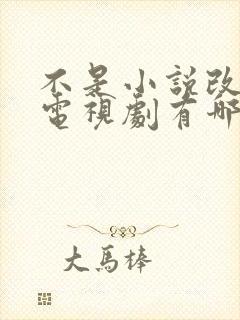 不是小説改
電視劇有哪
大馬棒